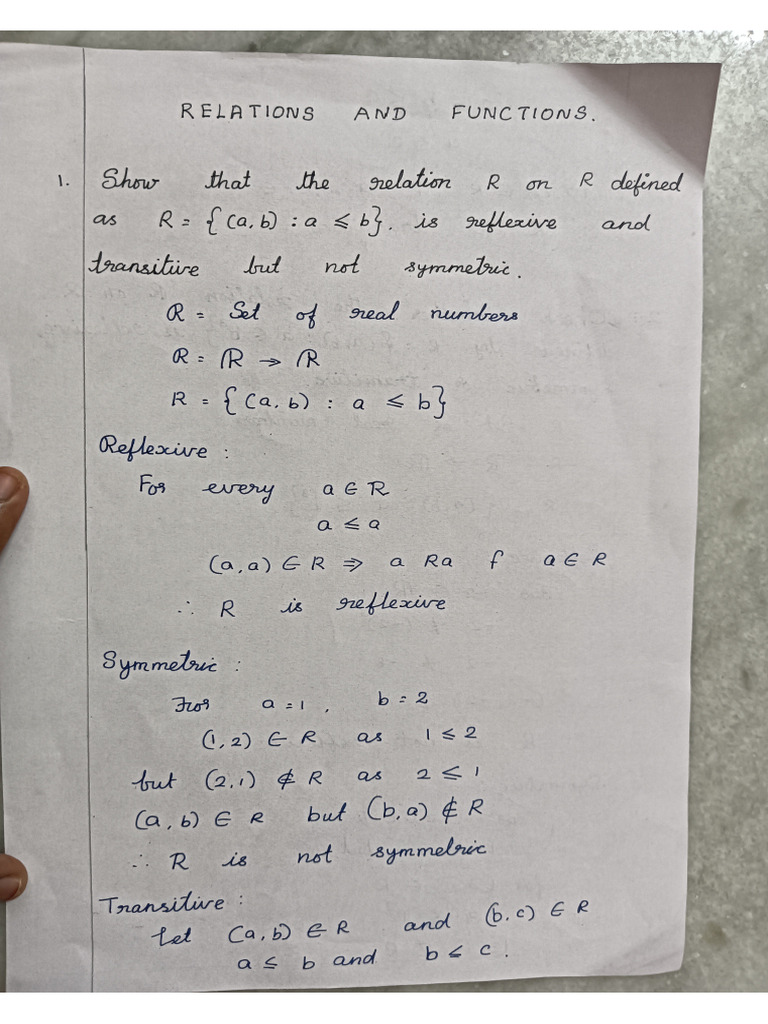 RELATIONS AND FUNCTIONS.
1. Show that the relation R on R defined
as R = {(a, b) : a ≤ b}. is reflexive and
transitive but not symmetric.
R = Set of real numbers
R = R → R
R = {(a, b) : a ≤ b}
Reflexive :
For every a ∈ R
a ≤ a
(a, a) ∈ R ⇒ a Ra f a ∈ R
∴ R is reflexive
Symmetric :
For a = 1, b = 2
(1, 2) ∈ R as 1 ≤ 2
but (2, 1) ∉ R as 2 ≤ 1
(a, b) ∈ R but (b, a) ∉ R
∴ R is not symmetric
Transitive :
Let (a, b) ∈ R and (b, c) ∈ R
a ≤ b and b ≤ c.